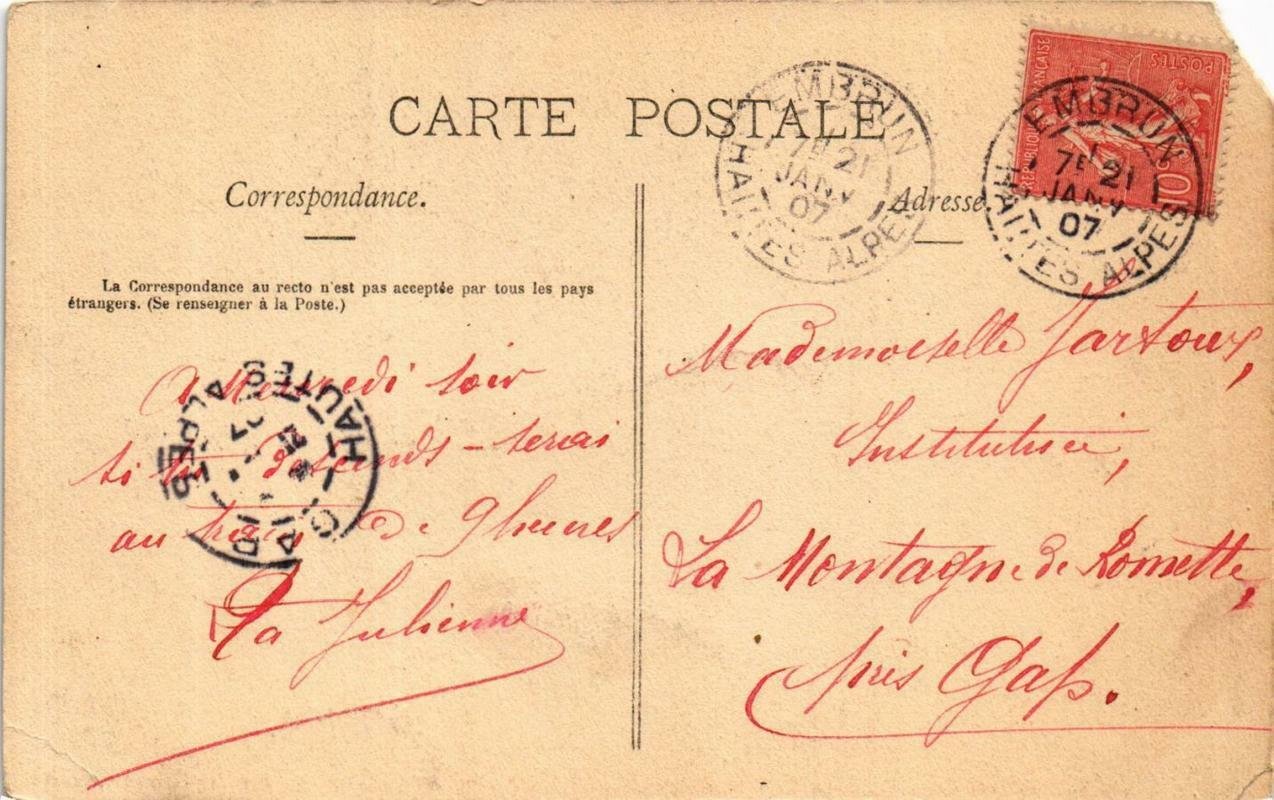 CARTE POSTALE
Correspondance.
La Correspondance au recto n'est pas acceptée par tous les pays
étrangers. (Se renseigner à la Poste.)
A Mercredi soir
si tu descends - serai
au train de 9 heures
Ta Julienne
Adresse
EMBRUN
7E 21
JANV
07
HAUTES ALPES
REPUBLIQUE FRANÇAISE
POSTES
10
EMBRUN
7E 21
JANV
07
HAUTES ALPES
Mademoiselle Jartoux,
Institutrice,
La Montagne de Romette,
près Gap.
GAP
HAUTES ALPES
07